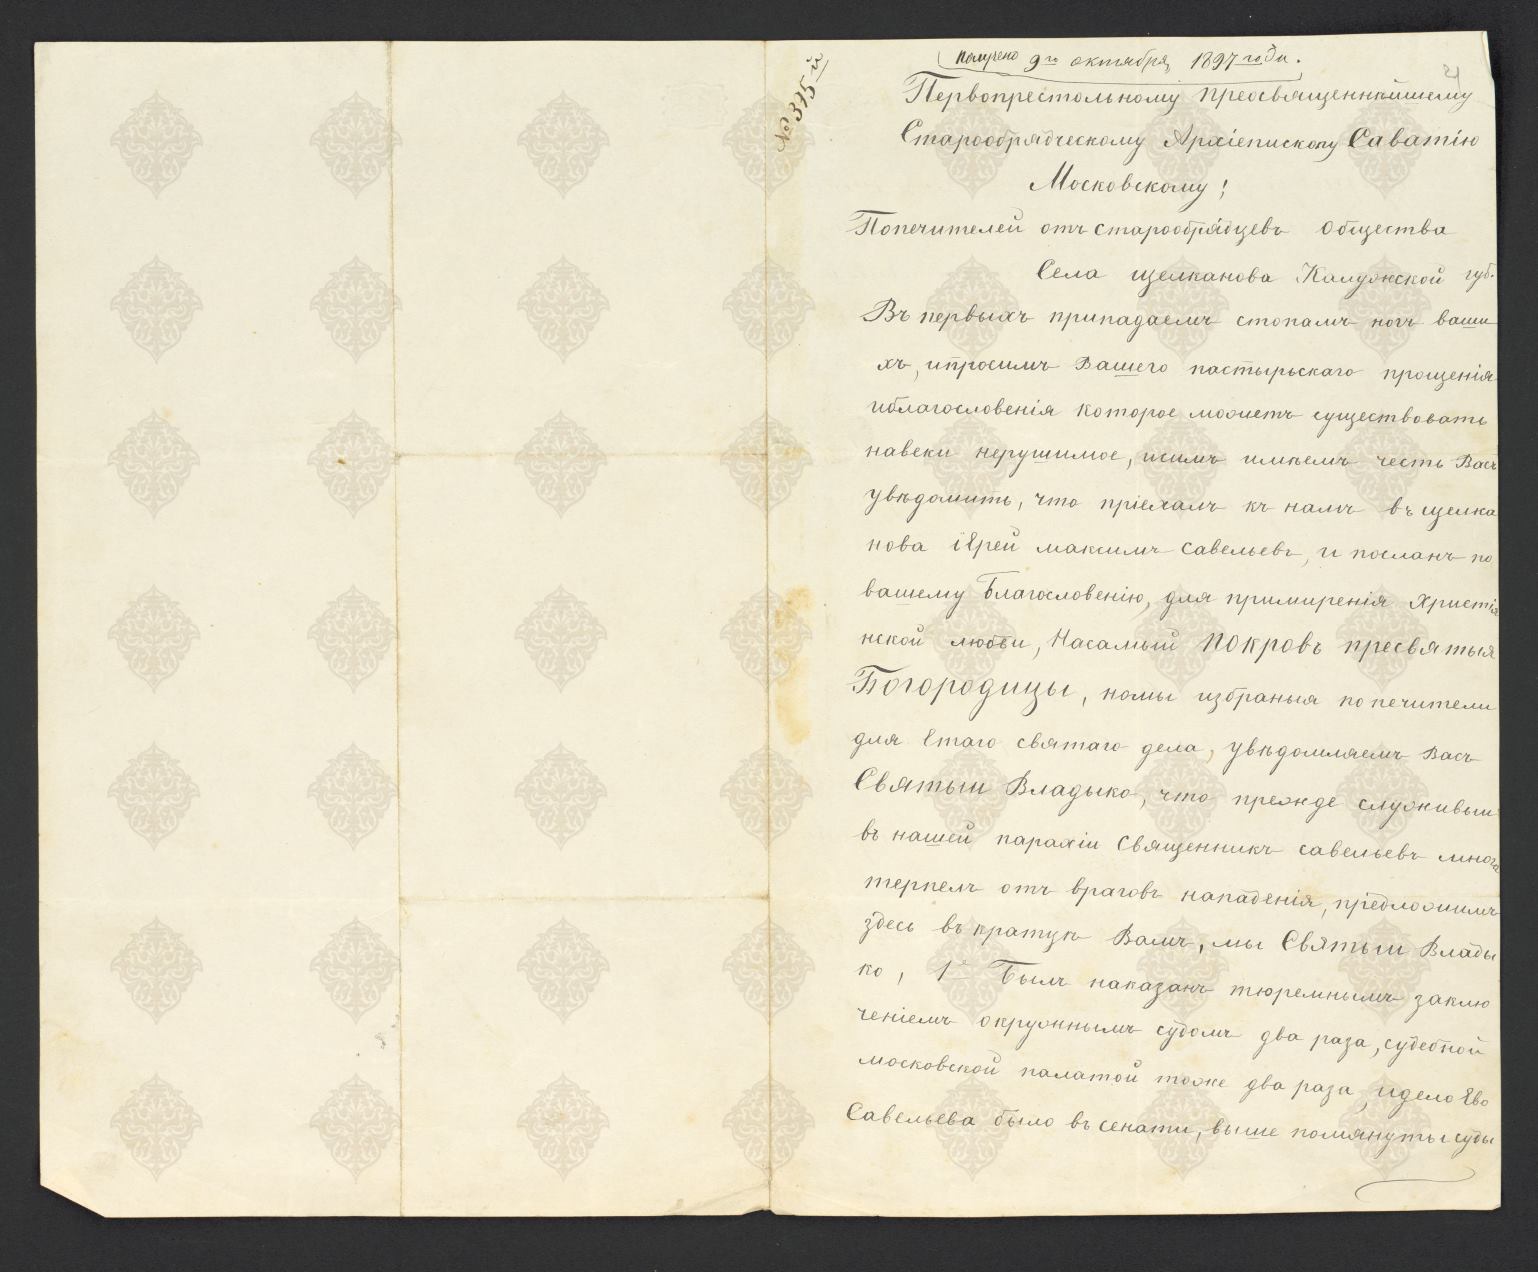 получено 9го октября, 1897 годи.
№ 375й
Первопрестольному преосвященнѣйшему
Старообрядческому Архіепископу Саватію
Московскому!
Попечителей отъ старообрядцевъ Общества
Села щелканова Калужской губ.
Въ первыхъ припадаемъ стопамъ ногъ ваши
хъ, ипросимъ Вашего пастырьскаго прощенія
иблагословенія которое можетъ существовать
навеки нерушимое, исимъ имѣемъ честь Васъ
увѣдомить, что пріехалъ къ намъ въ щелка
нова іЕрей максимъ савельевъ, и посланъ по
вашему Благословенію, для примиренія Христіа
нской любви, Насамый покровъ пресвятыя
Богородицы, номы избраныя попечители
для Етаго святаго дела, увѣдомляемъ Васъ
Святыи Владыко, что прежде служивыи
въ нашей парахіи Священникъ савельевъ многа
терпелъ отъ враговъ нападенія, предложимъ
здесь въ кратцѣ Вамъ, мы Святыи Влады
ко, 1е Былъ наказанъ тюремнымъ заклю
ченіемъ окружнымъ судомъ два раза, судебной
московской палатой тоже два раза, идело Ево
Савельева было въ сенати, выше помянуты суды